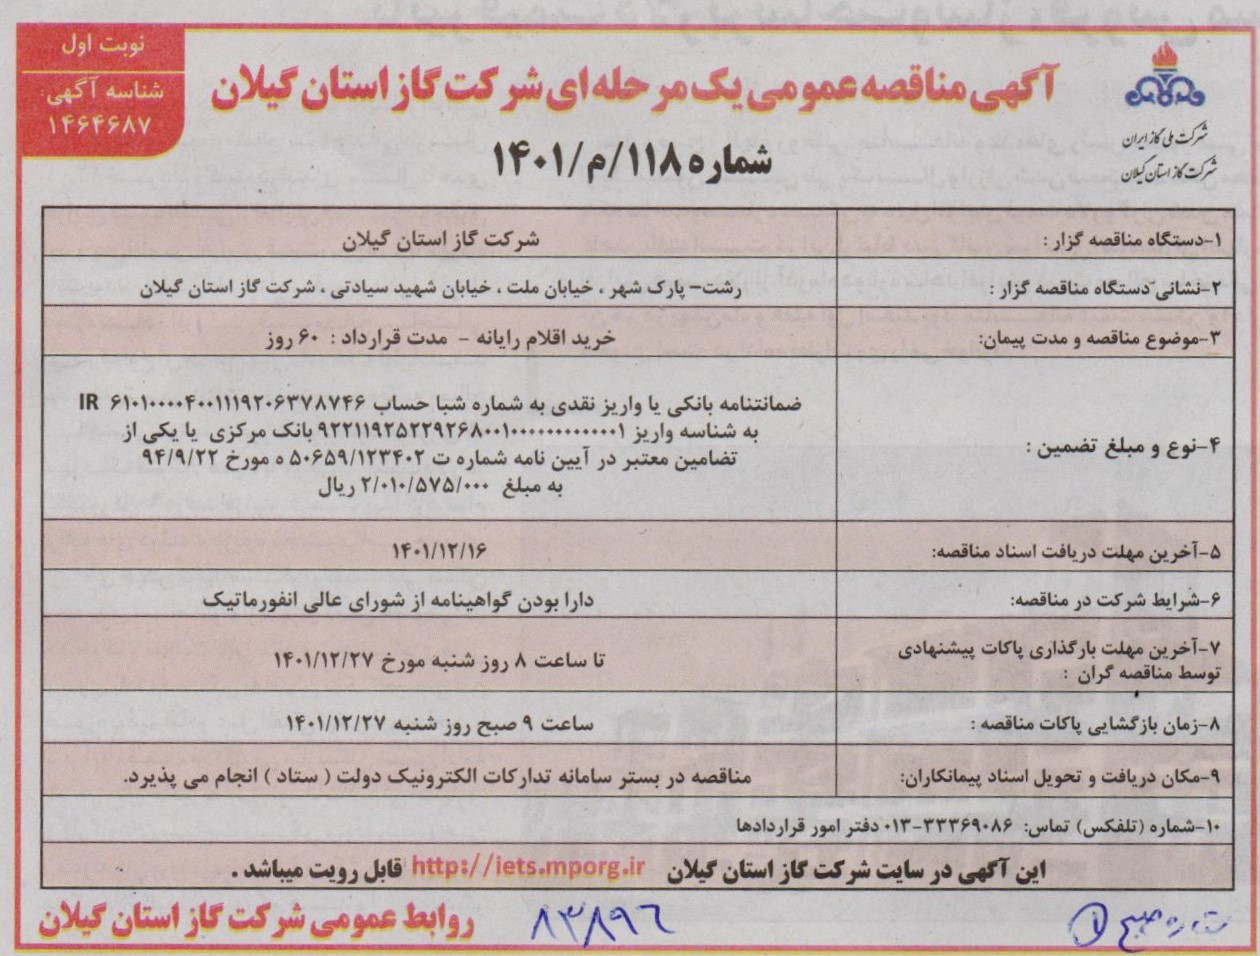 نوبت اول
شناسه آگهی:
۱۴۶۴۶۸۷
آگهی مناقصه عمومی یک مرحله ای شرکت گاز استان گیلان
شماره ۱۱۸/م/۱۴۰۱
شرکت ملی گاز ایران
شرکت گاز استان گیلان
۱-دستگاه مناقصه گزار : شرکت گاز استان گیلان
۲-نشانی دستگاه مناقصه گزار : رشت- پارک شهر ، خیابان ملت ، خیابان شهید سیادتی ، شرکت گاز استان گیلان
۳-موضوع مناقصه و مدت پیمان: خرید اقلام رایانه - مدت قرارداد : ۶۰ روز
۴-نوع و مبلغ تضمین :
ضمانتنامه بانکی یا واریز نقدی به شماره شبا حساب IR ۶۱۰۱۰۰۰۰۴۰۰۱۱۱۹۲۰۶۳۷۸۷۴۶
به شناسه واریز ۹۲۲۱۱۹۲۵۲۲۹۲۶۸۰۰۱۰۰۰۰۰۰۰۰۰۰۰۰۱ بانک مرکزی یا یکی از
تضامین معتبر در آیین نامه شماره ت ۵۰۶۵۹/۱۲۳۴۰۲ ه مورخ ۹۴/۹/۲۲
به مبلغ ۲/۰۱۰/۵۷۵/۰۰۰ ریال
۵-آخرین مهلت دریافت اسناد مناقصه: ۱۴۰۱/۱۲/۱۶
۶-شرایط شرکت در مناقصه: دارا بودن گواهینامه از شورای عالی انفورماتیک
۷-آخرین مهلت بارگذاری پاکات پیشنهادی
توسط مناقصه گران :
تا ساعت ۸ روز شنبه مورخ ۱۴۰۱/۱۲/۲۷
۸-زمان بازگشایی پاکات مناقصه : ساعت ۹ صبح روز شنبه ۱۴۰۱/۱۲/۲۷
۹-مکان دریافت و تحویل اسناد پیمانکاران: مناقصه در بستر سامانه تدارکات الکترونیک دولت ( ستاد ) انجام می پذیرد.
۱۰-شماره (تلفکس) تماس: ۳۳۳۶۹۰۸۶-۰۱۳ دفتر امور قراردادها
این آگهی در سایت شرکت گاز استان گیلان http://iets.mporg.ir قابل رویت میباشد .
روابط عمومی شرکت گاز استان گیلان
۸۳۸۹۶
ستاره صبح ۱